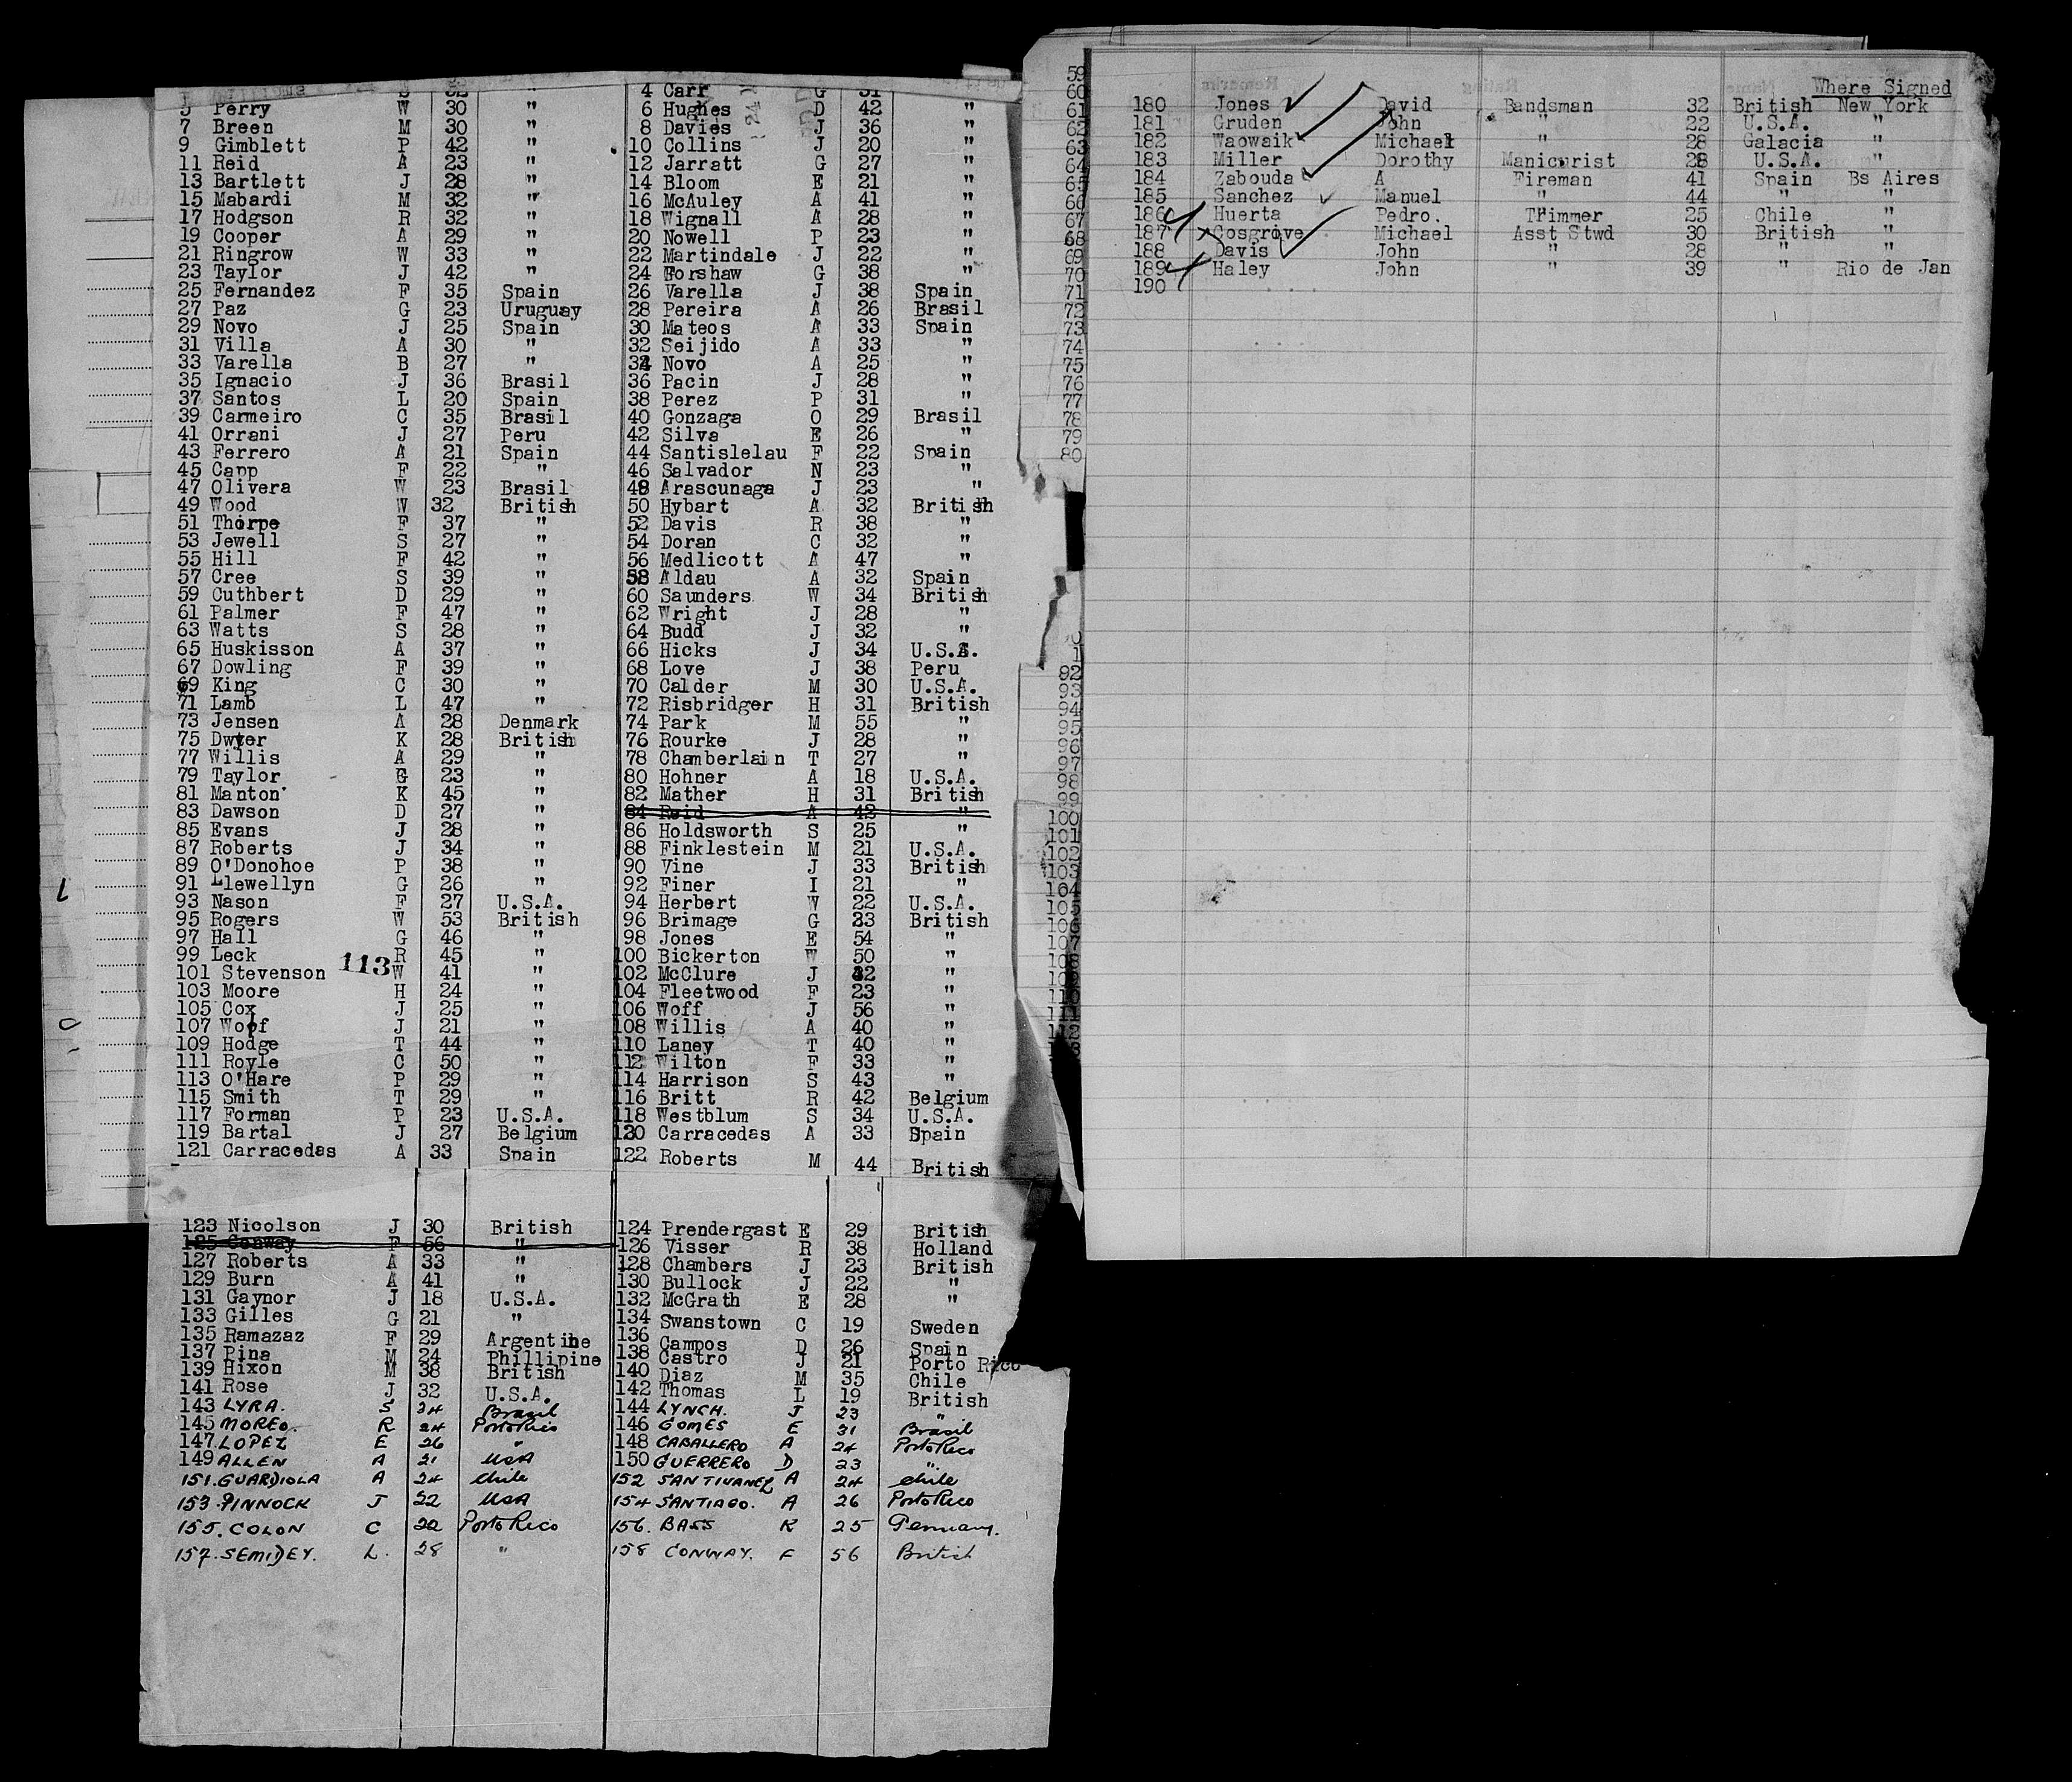 4 Carr G 31
5 Perry W 30 " 6 Hughes D 42 "
7 Breen M 30 " 8 Davies J 36 "
9 Gimblett P 42 " 10 Collins J 20 "
11 Reid A 23 " 12 Jarratt G 27 "
13 Bartlett J 28 " 14 Bloom E 21 "
15 Mabardi M 32 " 16 McAuley A 41 "
17 Hodgson R 32 " 18 Wignall A 28 "
19 Cooper A 29 " 20 Nowell P 23 "
21 Ringrow W 33 " 22 Martindale J 22 "
23 Taylor J 42 " 24 Forshaw G 38 "
25 Fernandez F 35 Spain 26 Varella J 38 Spain
27 Paz G 23 Uruguay 28 Pereira A 26 Brasil
29 Novo J 25 Spain 30 Mateos A 33 Spain
31 Villa A 30 " 32 Seijido A 33 "
33 Varella B 27 " 34 Novo A 25 "
35 Ignacio J 36 Brasil 36 Pacin J 28 "
37 Santos L 20 Spain 38 Perez P 31 "
39 Carmeiro C 35 Brasil 40 Gonzaga O 29 Brasil
41 Orrani J 27 Peru 42 Silva E 26 "
43 Ferrero A 21 Spain 44 Santislelau F 22 Spain
45 Capp F 22 " 46 Salvador N 23 "
47 Olivera W 23 Brasil 48 Arascunaga J 23 "
49 Wood W 32 British 50 Hybart A 32 British
51 Thorpe F 37 " 52 Davis R 38 "
53 Jewell S 27 " 54 Doran C 32 "
55 Hill F 42 " 56 Medlicott A 47 "
57 Cree S 39 " 58 Aldau A 32 Spain
59 Cuthbert D 29 " 60 Saunders W 34 British
61 Palmer F 47 " 62 Wright J 28 "
63 Watts S 28 " 64 Budd J 32 "
65 Huskisson A 37 " 66 Hicks J 34 U.S.A.
67 Dowling F 39 " 68 Love J 38 Peru
69 King C 30 " 70 Calder M 30 U.S.A.
71 Lamb L 47 " 72 Risbridger H 31 British
73 Jensen A 28 Denmark 74 Park M 55 "
75 Dwyer K 28 British 76 Rourke J 28 "
77 Willis A 29 " 78 Chamberlain T 27 "
79 Taylor G 23 " 80 Hohner A 18 U.S.A.
81 Manton K 45 " 82 Mather H 31 British
83 Dawson D 27 " 84 Reid A 42 "
85 Evans J 28 " 86 Holdsworth S 25 "
87 Roberts J 34 " 88 Finklestein M 21 U.S.A.
89 O'Donohoe P 38 " 90 Vine J 33 British
91 Llewellyn G 26 " 92 Finer I 21 "
93 Nason F 27 U.S.A. 94 Herbert W 22 U.S.A.
95 Rogers W 53 British 96 Brimage G 33 British
97 Hall G 46 " 98 Jones E 54 "
99 Leck R 45 " 100 Bickerton W 50 "
113
101 Stevenson W 41 " 102 McClure J 32 "
103 Moore H 24 " 104 Fleetwood F 23 "
105 Cox J 25 " 106 Woff J 56 "
107 Woof J 21 " 108 Willis A 40 "
109 Hodge T 44 " 110 Laney T 40 "
111 Royle C 50 " 112 Wilton F 33 "
113 O'Hare P 29 " 114 Harrison S 43 "
115 Smith T 29 " 116 Britt R 42 Belgium
117 Forman P 23 U.S.A. 118 Westblum S 34 U.S.A.
119 Bartal J 27 Belgium 120 Carracedas A 33 Spain
121 Carracedas A 33 Spain 122 Roberts M 44 British
123 Nicolson J 30 British 124 Prendergast E 29 British
125 Conway F 56 " 126 Visser R 38 Holland
127 Roberts A 33 " 128 Chambers J 23 British
129 Burn A 41 " 130 Bullock J 22 "
131 Gaynor J 18 U.S.A. 132 McGrath E 28 "
133 Gilles G 21 " 134 Swanstown C 19 Sweden
135 Ramazaz F 29 Argentine 136 Campos D 26 Spain
137 Pina M 24 Phillipine 138 Castro J 21 Porto Rico
139 Hixon M 38 British 140 Diaz M 35 Chile
141 Rose J 32 U.S.A. 142 Thomas L 19 British
143 LYRA. S 24 Brasil 144 LYNCH. J 23 "
145 MOREO. R 24 Porto Rico 146 GOMES E 31 Brasil
147. LOPEZ E 26 " 148 CABALLERO A 24 Porto Rico
149 ALLEN A 21 USA 150 GUERRERO D 23 "
151. GUARDIOLA A 24 Chile 152 SANTIVANEZ A 24 Chile
153. PINNOCK J 22 USA 154 SANTIAGO. A 26 Porto Rico
155. COLON C 22 Porto Rico 156. BASS K 25 Germany.
157. SEMIDEY. L. 28 " 158 CONWAY. F 56 British
59
60
61
62
63
64
65
66
67
68
69
70
71
72
73
74
75
76
77
78
79
80
92
93
94
95
96
97
98
99
100
101
102
103
104
105
106
107
108
109
110
111
112
Where Signed
180 Jones David Bandsman 32 British New York
181 Gruden John " 22 U.S.A. "
182 Waowaik Michael " 28 Galacia "
183 Miller Dorothy Manicurist 28 U.S.A. "
184 Zabouda A Fireman 41 Spain Bs Aires
185 Sanchez Manuel " 44 " "
186 Huerta Pedro. Trimmer 25 Chile "
187 Cosgrove Michael Asst Stwd 30 British "
188 Davis John " 28 " "
189 Haley John " 39 " Rio de Jan
190